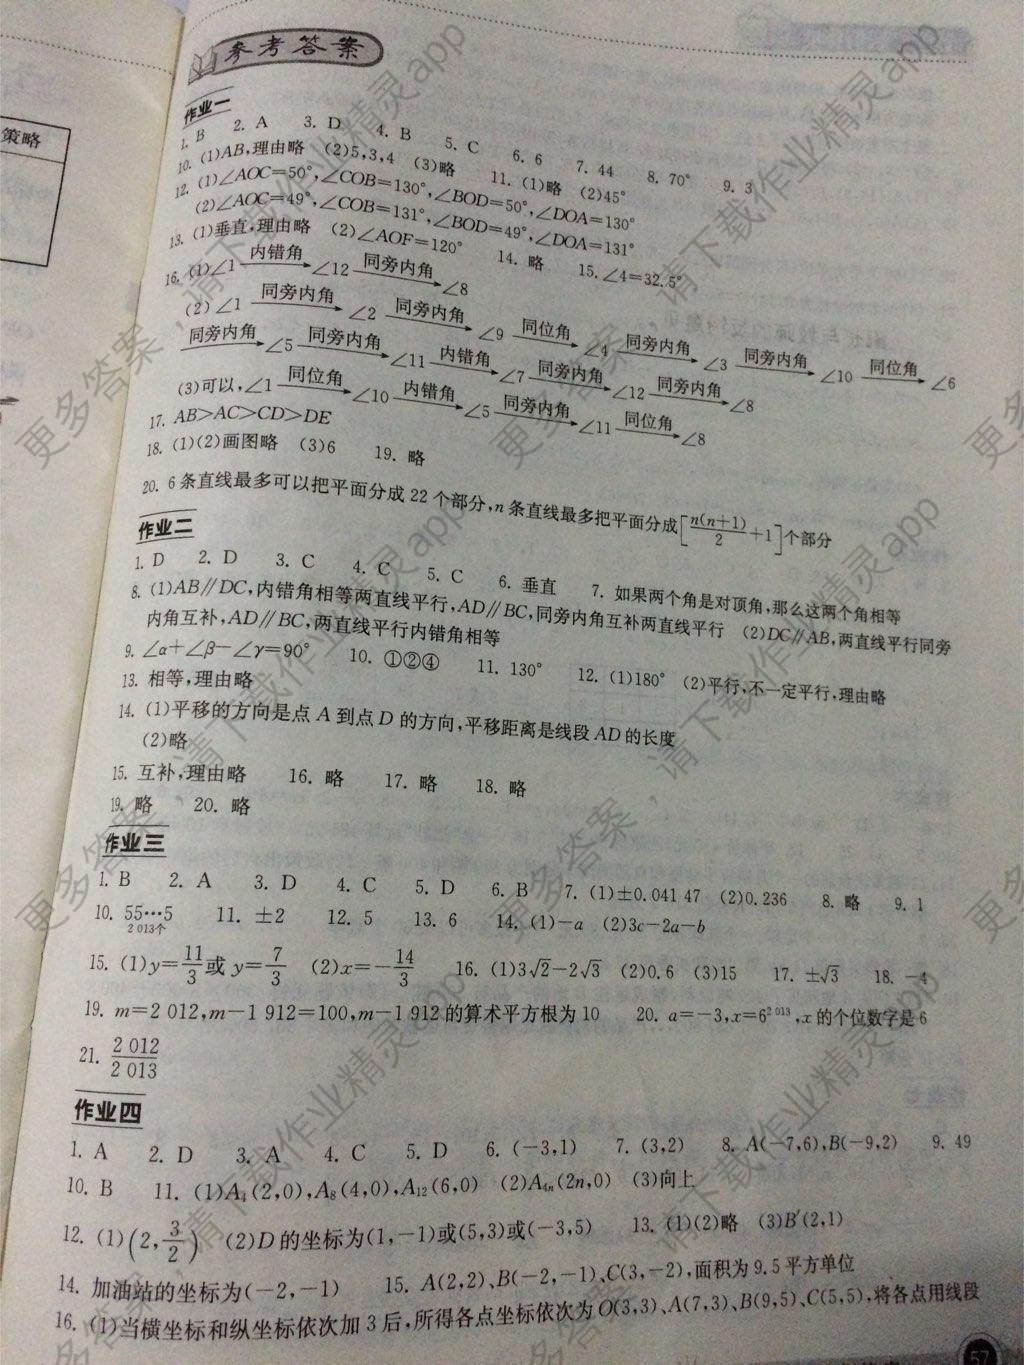 策略
参考答案
作业一
1. B 2. A 3. D 4. B 5. C 6. 6 7. 44 8. 70° 9. 3
10. (1)AB,理由略 (2)5,3,4 (3)略 11. (1)略 (2)45°
12. (1)∠AOC=50°,∠COB=130°,∠BOD=50°,∠DOA=130°
(2)∠AOC=49°,∠COB=131°,∠BOD=49°,∠DOA=131°
13. (1)垂直,理由略 (2)∠AOF=120° 14. 略 15. ∠4=32.5°
16. (1)∠1 内错角→ ∠12 同旁内角→ ∠8
(2)∠1 同旁内角→ ∠2 同旁内角→ ∠9 同位角→ ∠4 同旁内角→ ∠3 同旁内角→ ∠10 同位角→ ∠6
同旁内角→ ∠5 同旁内角→ ∠11 内错角→ ∠7 同旁内角→ ∠12 同旁内角→ ∠8
(3)可以,∠1 同位角→ ∠10 内错角→ ∠5 同旁内角→ ∠11 同位角→ ∠8
17. AB>AC>CD>DE
18. (1)(2)画图略 (3)6 19. 略
20. 6条直线最多可以把平面分成22个部分,n条直线最多把平面分成[n(n+1)/2+1]个部分
作业二
1. D 2. D 3. C 4. C 5. C 6. 垂直 7. 如果两个角是对顶角,那么这两个角相等
8. (1)AB∥DC,内错角相等两直线平行,AD∥BC,同旁内角互补两直线平行 (2)DC∥AB,两直线平行同旁
内角互补,AD∥BC,两直线平行内错角相等
9. ∠α+∠β-∠γ=90° 10. ①②④ 11. 130° 12. (1)180° (2)平行,不一定平行,理由略
13. 相等,理由略
14. (1)平移的方向是点A到点D的方向,平移距离是线段AD的长度
(2)略
15. 互补,理由略 16. 略 17. 略 18. 略
19. 略 20. 略
作业三
1. B 2. A 3. D 4. C 5. D 6. B 7. (1)±0.041 47 (2)0.236 8. 略 9. 1
10. 55…5 11. ±2 12. 5 13. 6 14. (1)-a (2)3c-2a-b
2 013个
15. (1)y=11/3或y=7/3 (2)x=-14/3 16. (1)3√2-2√3 (2)0.6 (3)15 17. ±√3 18. -4
19. m=2 012,m-1 912=100,m-1 912的算术平方根为10 20. a=-3,x=6²⁰¹³,x的个位数字是6
21. 2 012/2 013
作业四
1. A 2. D 3. A 4. C 5. D 6. (-3,1) 7. (3,2) 8. A(-7,6),B(-9,2) 9. 49
10. B 11. (1)A₄(2,0),A₈(4,0),A₁₂(6,0) (2)A₄ₙ(2n,0) (3)向上
12. (1)(2,3/2) (2)D的坐标为(1,-1)或(5,3)或(-3,5) 13. (1)(2)略 (3)B′(2,1)
14. 加油站的坐标为(-2,-1) 15. A(2,2)、B(-2,-1)、C(3,-2),面积为9.5平方单位
16. (1)当横坐标和纵坐标依次加3后,所得各点坐标依次为O(3,3)、A(7,3)、B(9,5)、C(5,5),将各点用线段
57
更多答案,请下载作业精灵app